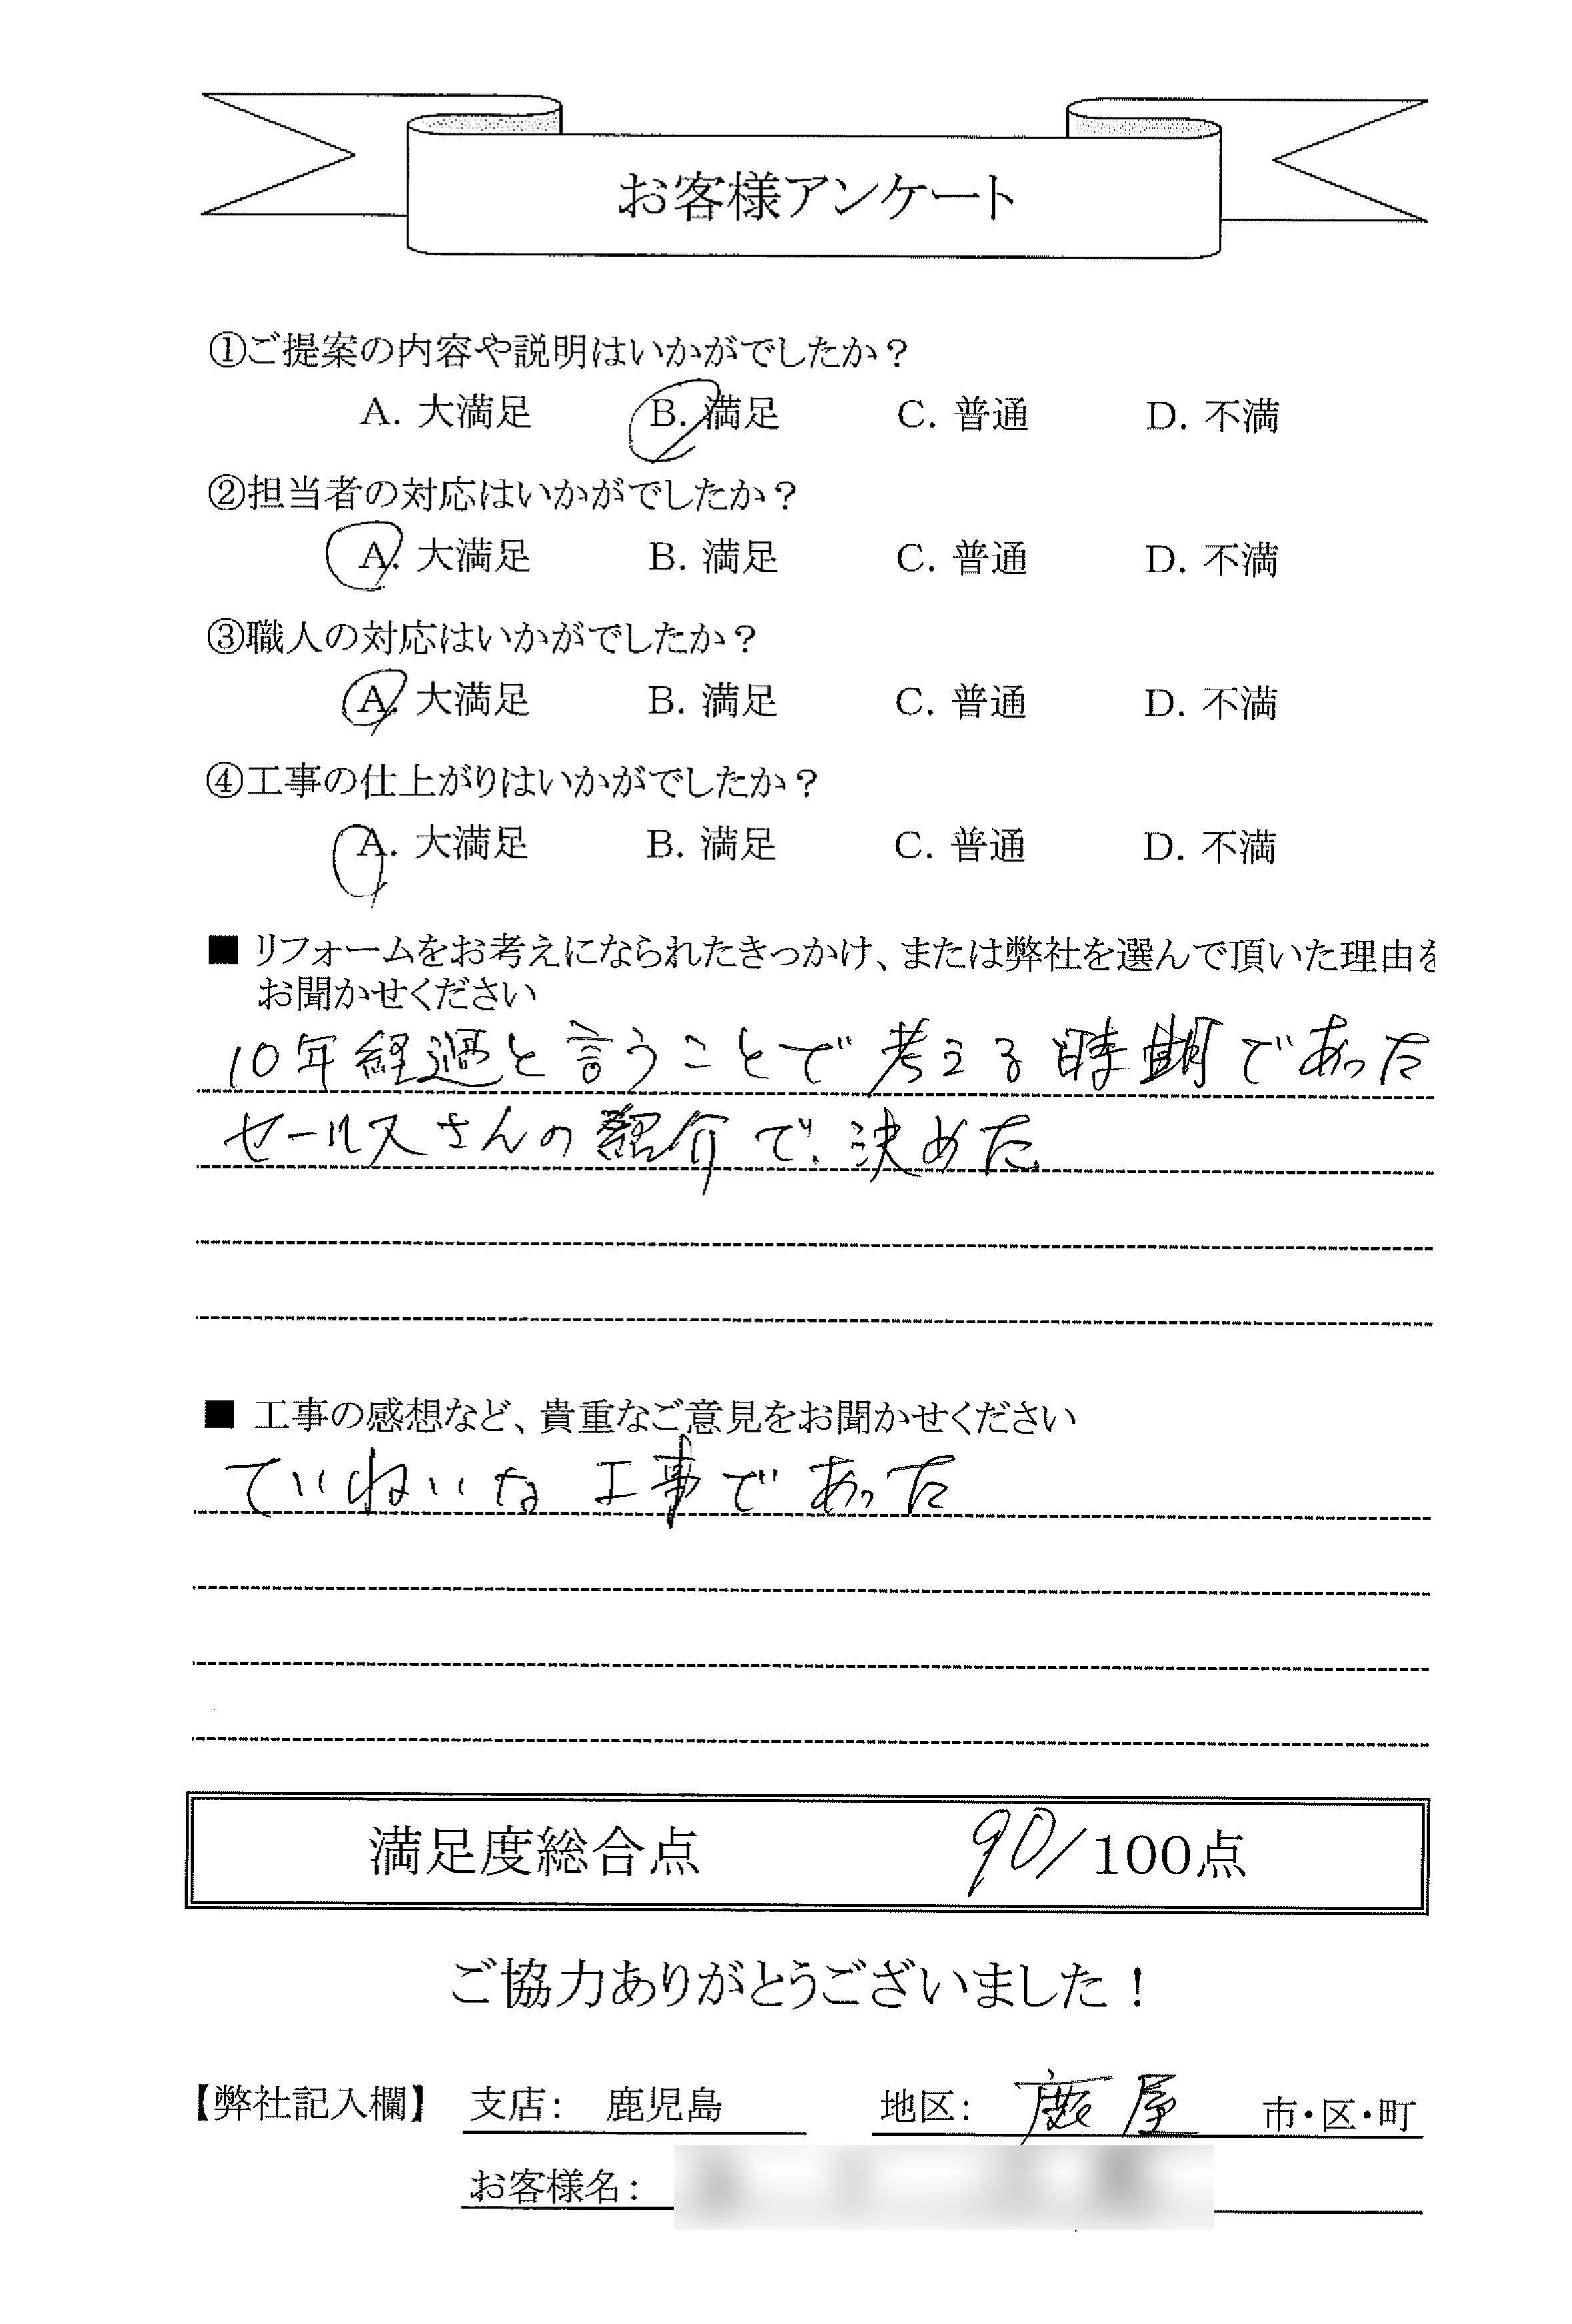 お客様アンケート
①ご提案の内容や説明はいかがでしたか？
A. 大満足 B. 満足 C. 普通 D. 不満
②担当者の対応はいかがでしたか？
A. 大満足 B. 満足 C. 普通 D. 不満
③職人の対応はいかがでしたか？
A. 大満足 B. 満足 C. 普通 D. 不満
④工事の仕上がりはいかがでしたか？
A. 大満足 B. 満足 C. 普通 D. 不満
■ リフォームをお考えになられたきっかけ、または弊社を選んで頂いた理由を
お聞かせください
10年経過と言うことで考える時期であった
セールスさんの紹介で、決めた
■ 工事の感想など、貴重なご意見をお聞かせください
ていねいな工事であった
満足度総合点 90/100点
ご協力ありがとうございました！
【弊社記入欄】 支店： 鹿児島 地区： 鹿屋 市・区・町
お客様名：